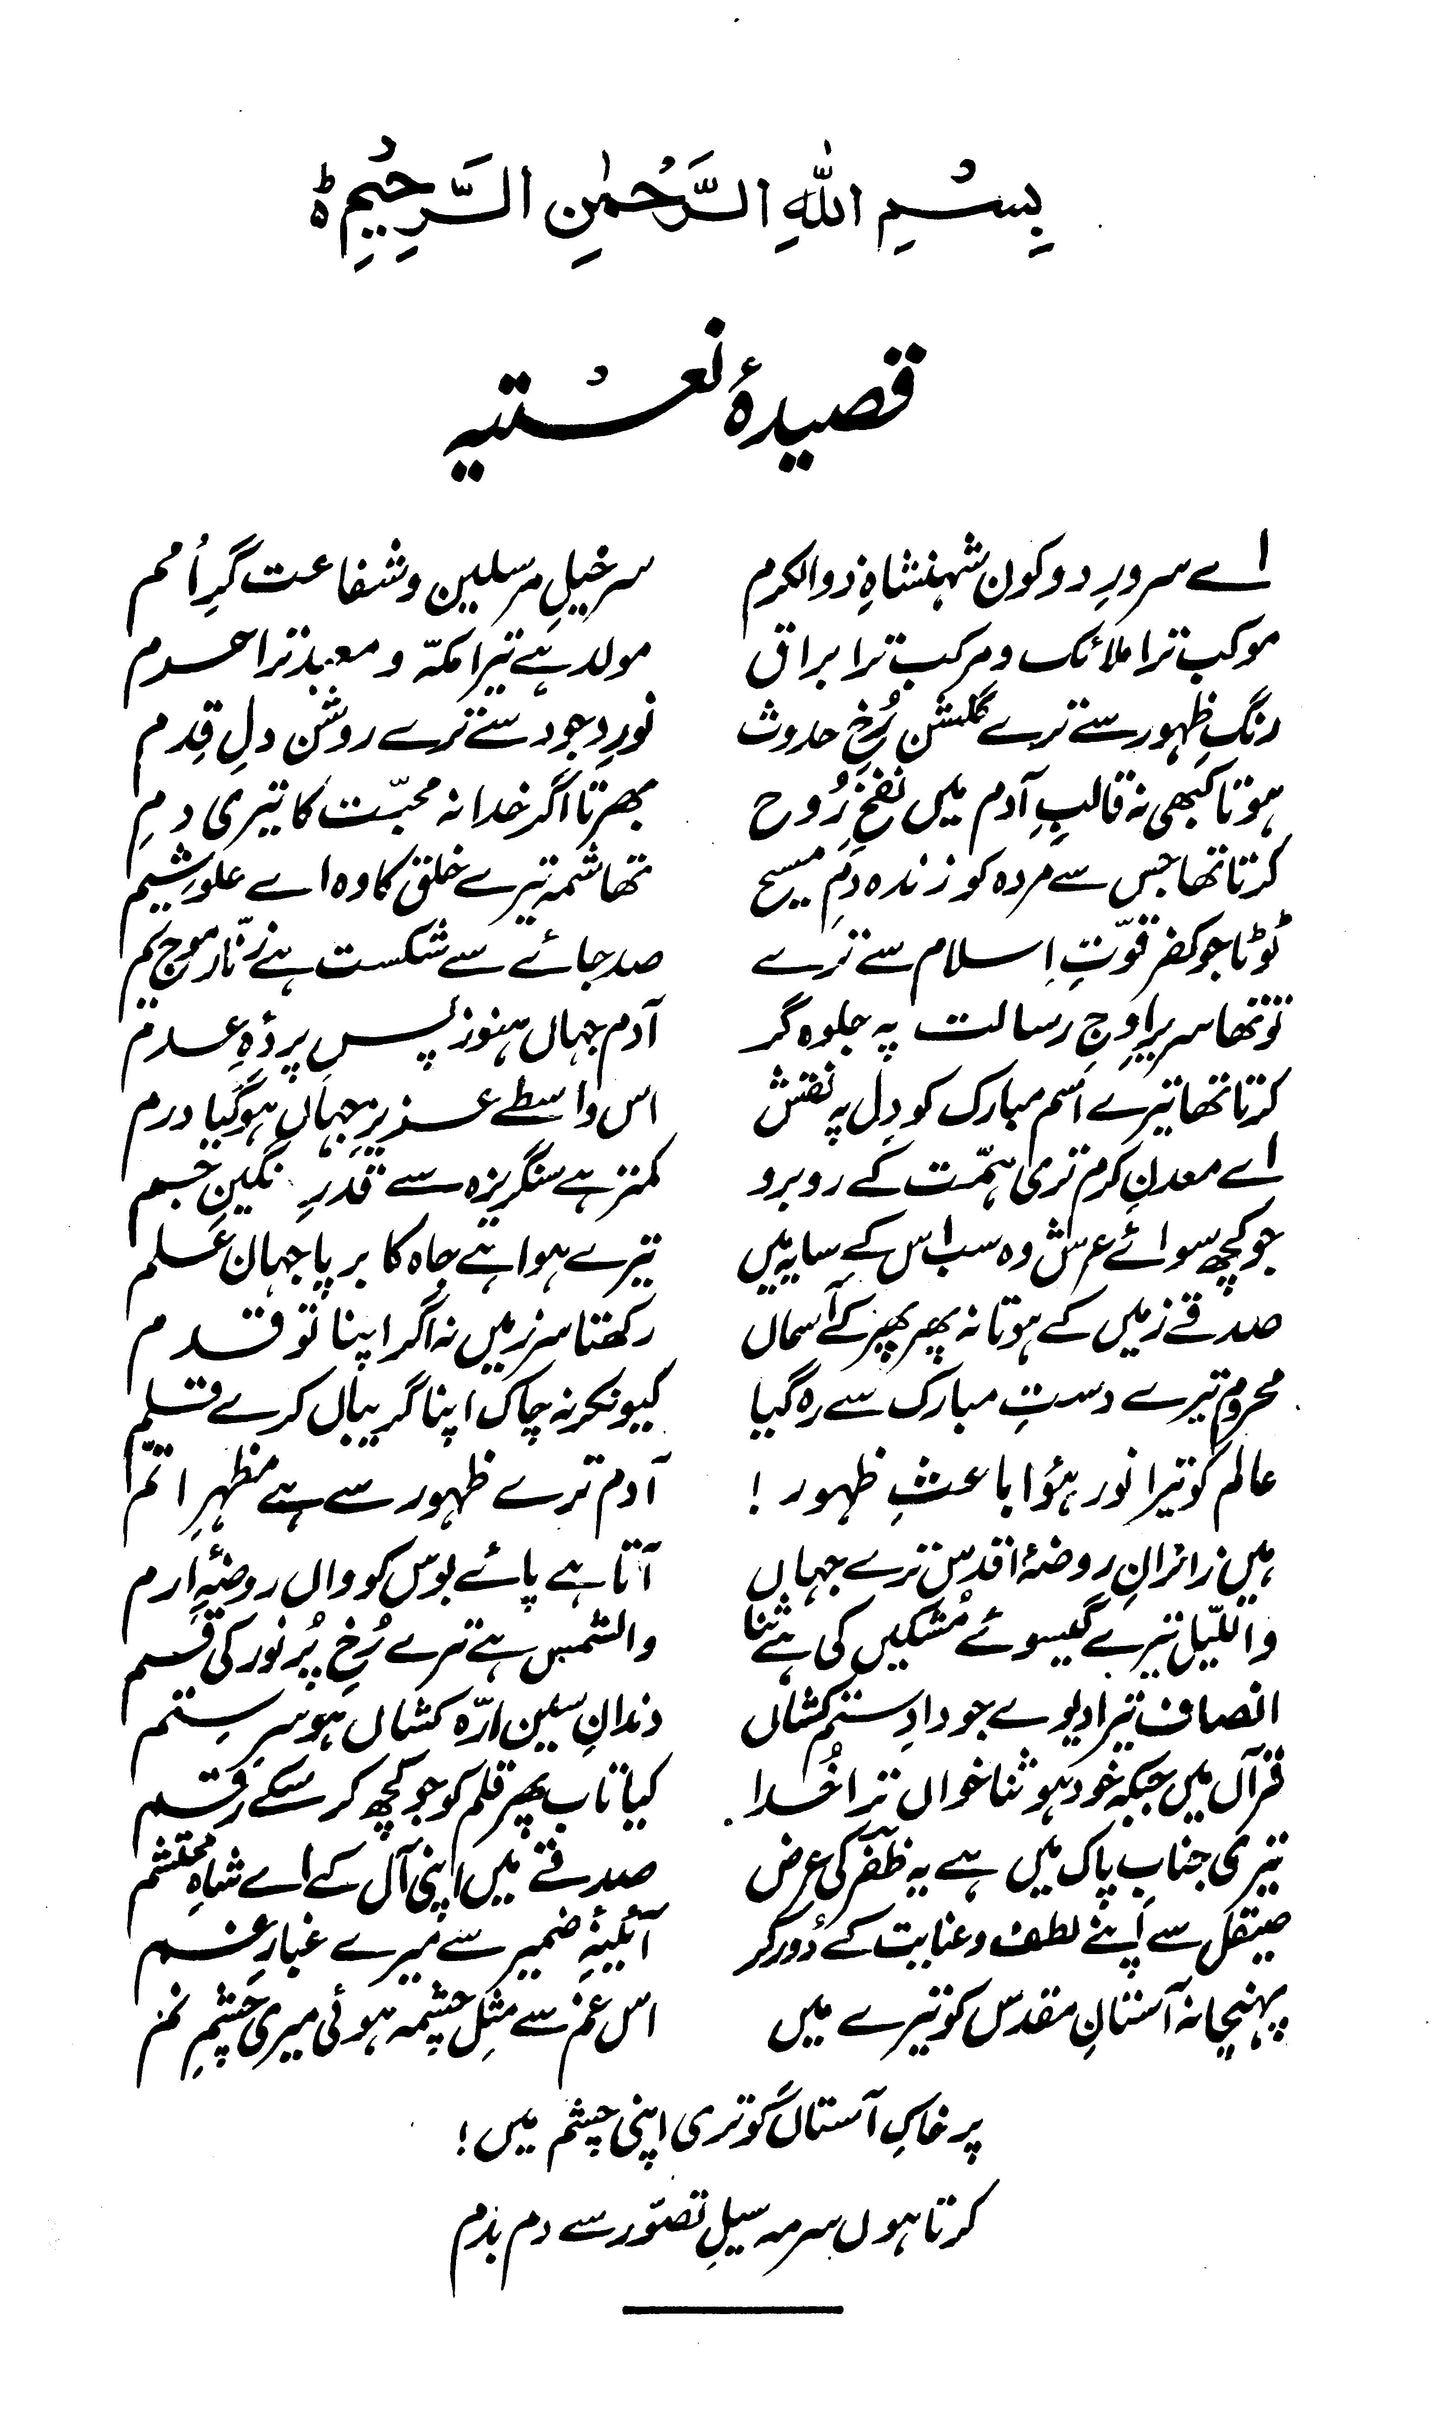 بِسْمِ اللہِ الرَّحْمٰنِ الرَّحِیْمِ ہ
قصیدۂ نعتیہ
اے سرورِ دو کون شہنشاہِ ذوالکرم سرخیلِ مرسلین و شفاعت گرِ اُمم
موکب ترا ملائک و مرکب ترا براق مولد ہے تیرا مکّہ و معبد ترا حرم
رنگِ ظہور سے ترے گلشن رُخِ حدوث نورِ وجود سے ترے روشن دلِ قِدم
ہوتا کبھی نہ قالبِ آدم میں نفخِ رُوح بھرتا اگر خدا نہ محبّت کا تیری دم
کرتا تھا جس سے مردہ کو زندہ دمِ مسیح تھا شمہ تیرے خلق کا وہ اے علوِ شیم
ٹوٹا جو کفر قوّتِ اِسلام سے ترے صد جائے سے شکست ہے زنّارِ موجِ یم
تو تھا سریرِ اوجِ رسالت پہ جلوہ گر آدم جہاں ہنوز پسِ پردۂِ عدم
کرتا تھا تیرے اسم مبارک کو دِل پہ نقش اس واسطے عزیزِ جہاں ہوگیا درم
اے معدنِ کرم تری ہمّت کے روبرو کمتر ہے سنگریزہ سے قدرِ نگینِ جم
جو کچھ سوائے عرش وہ سب اس کے سایہ میں تیرے ہوا ہے جاہ کا برپا جہاں عَلم
صدقے زمیں کے ہوتا نہ پھر پھر کے آسماں رکھتا سر زمیں نہ اگر اپنا تو قدم
محروم تیرے دستِ مبارک سے رہ گیا کیونکر نہ چاک اپنا گریباں کرے قلم
عالم کو تیرا نور ہؤا باعثِ ظہور ! آدم ترے ظہور سے ہے مظہرِ اتم
ہیں زائرانِ روضۂ اقدس ترے جہاں آتا ہے پائے بوس کو واں روضۂِ اِرم
واللّیل تیرے گیسوئے مُشکیں کی ہے ثنا والشمس ہے ترے رُخِ پُر نور کی قسم
انصاف تیرا دیوے جو دادِ ستم کشاں دندانِ سین ارّہ کشاں ہو سرِ ستم
قرآں میں جبکہ خود ہو ثنا خواں ترا خُدا کیا تاب پھر قلم کو جو کچھ کر سکے رقم
تیری جنابِ پاک میں ہے یہ ظفر کی عرض صدقے میں اپنی آل کے اے شاہِ محتشم
صیقل سے اپنے لطف و عنایت کے دُور کر آئینۂِ ضمیر سے میرے غبارِ غم
پہنچا نہ آستانِ مقدس کو تیرے میں اس غم سے مثلِ چشمہ ہوئی میری چشمِ نم
پر خاکِ آستاں کو تری اپنی چشم میں !
کرتا ہوں سرمہ سیلِ تصوّر سے دم بدم